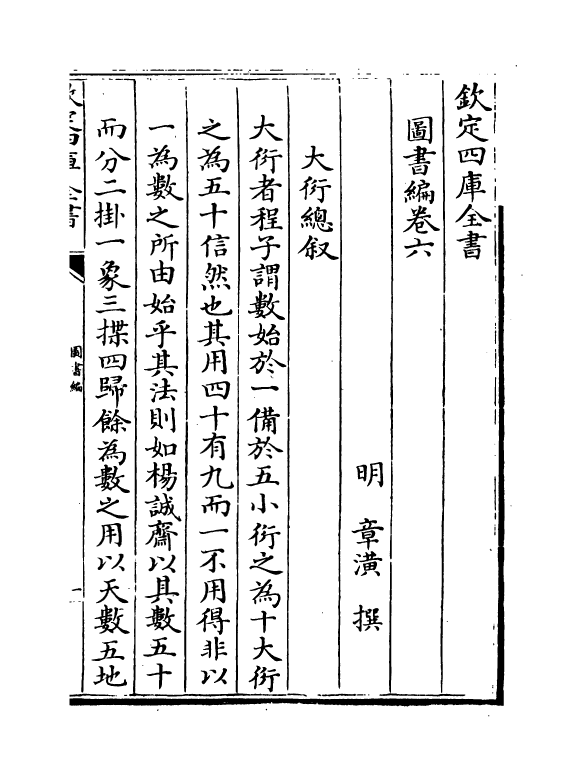 欽定四庫全書
圖書編卷六
明 章潢 撰
大衍總叙
大衍者程子謂數始於一備於五小衍之為十大衍
之為五十信然也其用四十有九而一不用得非以
一為數之所由始乎其法則如楊誠齋以具數五十
而分二掛一象三揲四歸餘為數之用以天數五地
欽定四庫全書
圖書編
一